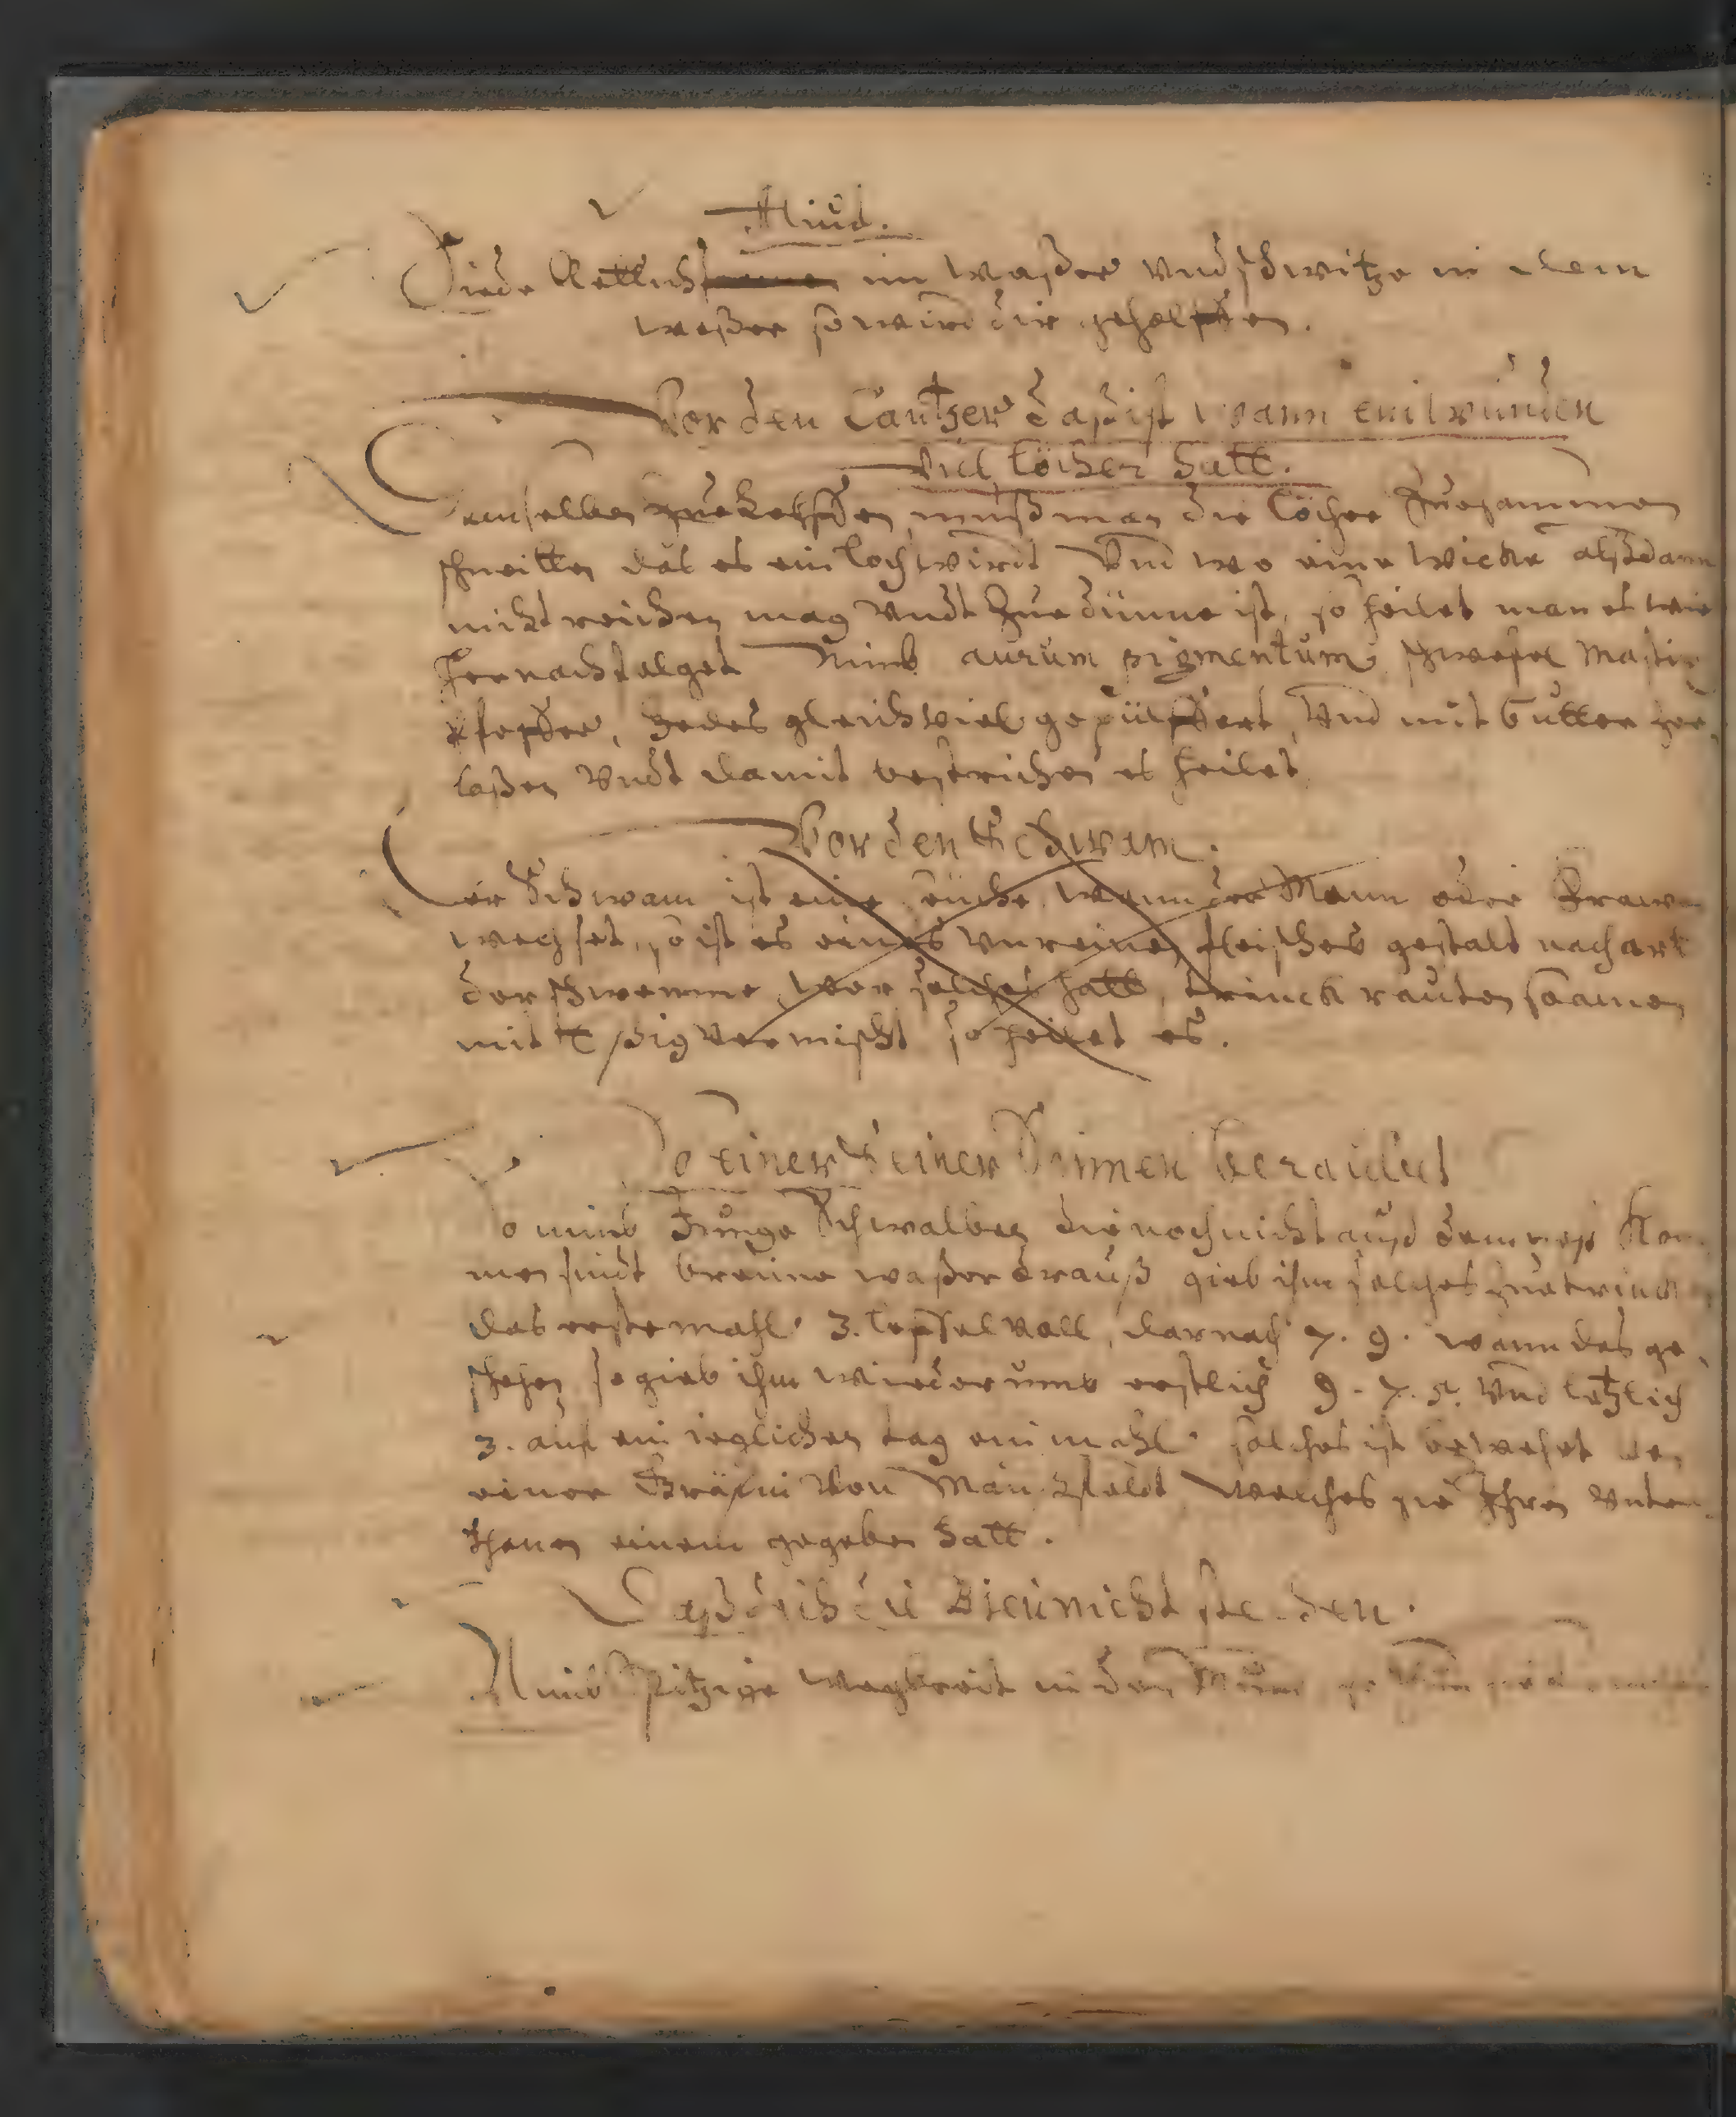 Aliud.
Siede Rettich im waßer vnd schwitze in dem
waßer so wird dir geholffen.
Vor den Cantzer daß ist wann ein wunden
viel löcher hatt.
Demselben zue helffen, muß man die löcher zuesammen
schneitten das es ein loch wirdt Vnd wo eine wicke alßdann
nicht reichen mag vndt zue dünne ist, so heilet man es wie
hernachfolget Nimb aurum pigmentum, schwefel Mastix
pfeffer, jedes gleich viel gepülffert, Vnd mit butter zer
laßen vndt damit bestrichen es heilet
Vor den Schwam.
Der Schwam ist eine seuche, wann der Mann oder Frawen
wechset, so ist es eines vnreines fleisches gestalt nach art
der schwemme, wer solches hatt, trinck rauten saamen
mit Eßig vermischt so heilet es.
So einer seiner Sinnen beraubet
So nimb Junge Schwalben die noch nicht auß dem nest kom
men sindt brenne waßer drauß gieb ihm solches zue trincken
das erste mahl 3. leffel voll, darnach 7. 9. wann das ge
schehen so gieb ihm wiederumb erstlich 9. 7. 5. Vnd letzlich
3. auf ein ieglichen tag ein mahl. solches ist bewehret
einer Gräfin von Mansfeldt welches sie Ihren vnter
thanen einem gegeben hatt.
Daß dich die Bienen nicht stechen.
Nimb spitzige wegbreit in den Mund, so